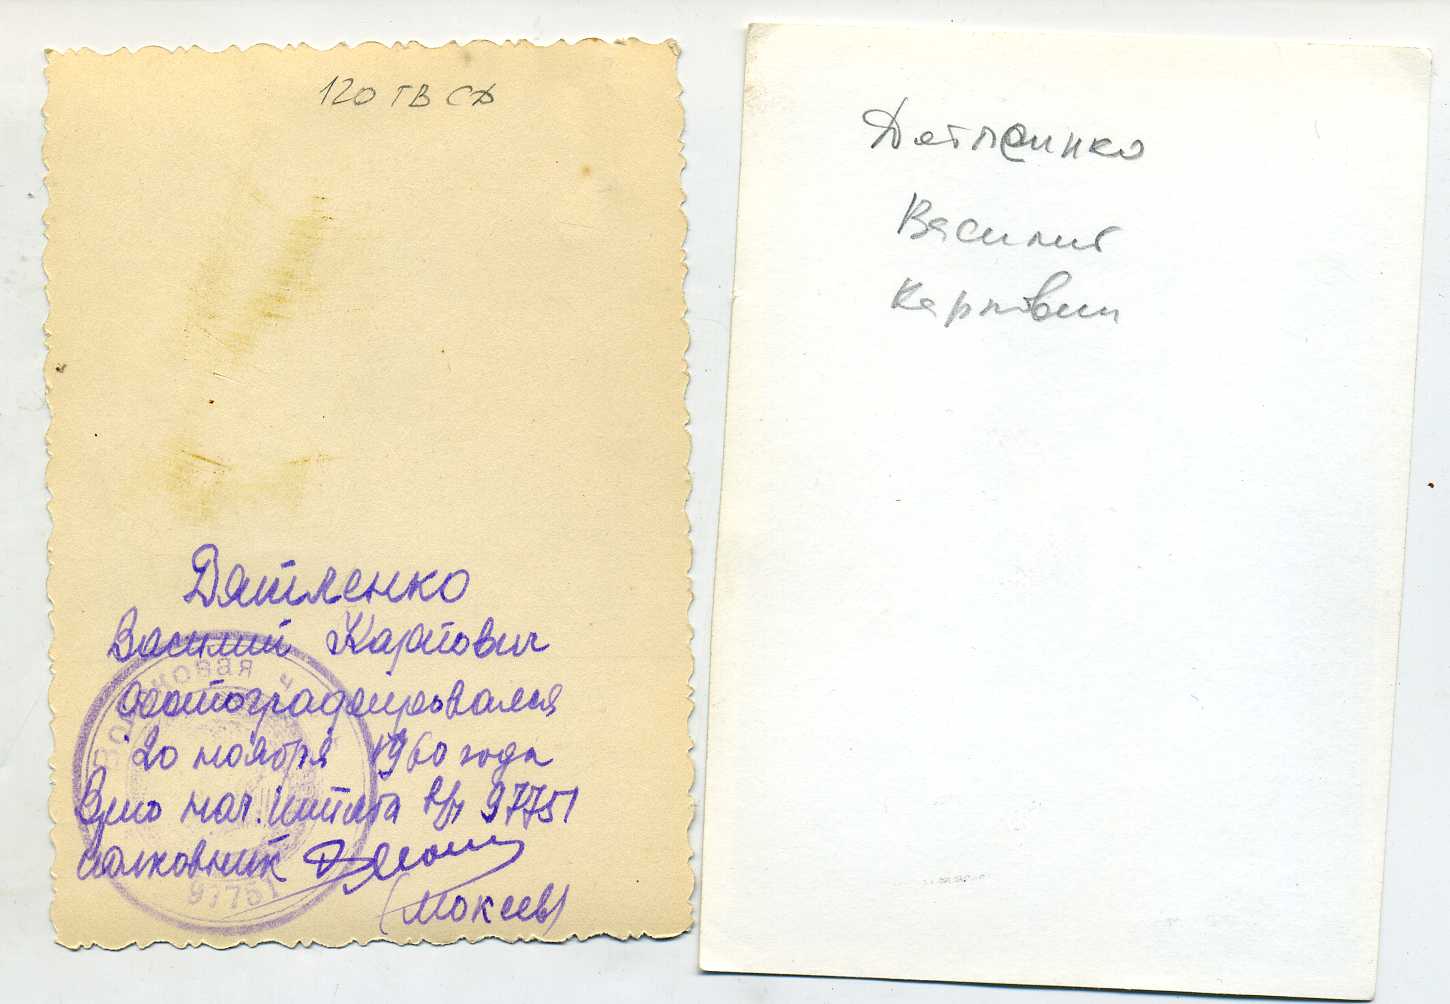 120 ГВ СД
Дятленко
Василий Карпович
сфотографировался
20 ноября 1960 года
Врио нач. штаба в/ч 97751
полковник
(Мокеев)
Войсковая ч
97751
Дятленко
Василий
Карпович